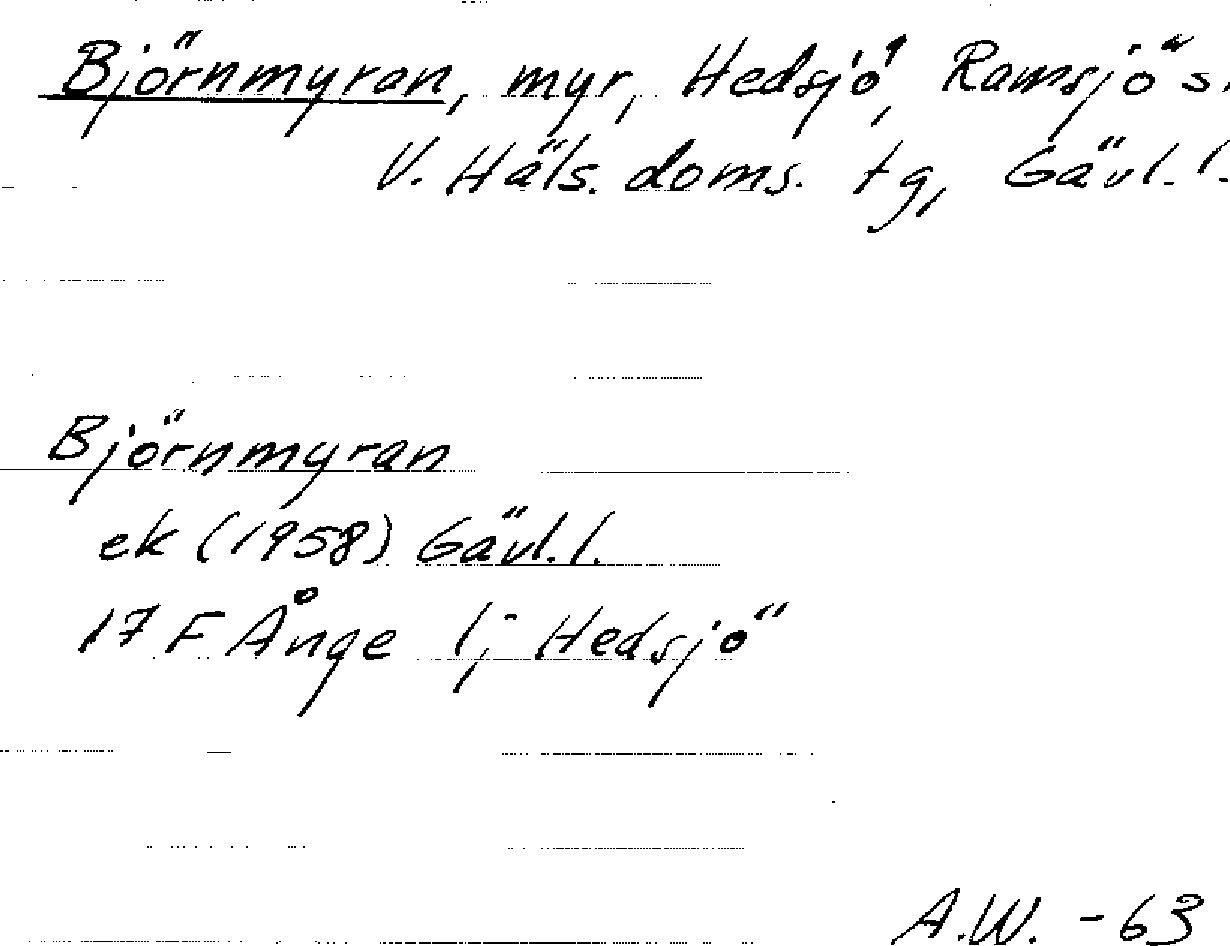 Björnmyran, myr, Hedsjö, Ramsjö s.
V. Häls. doms. tg, Gävl. l.
Björnmyran
ek (1958) Gävl. l.
17 F Ånge j; Hedsjö
A.W. -63